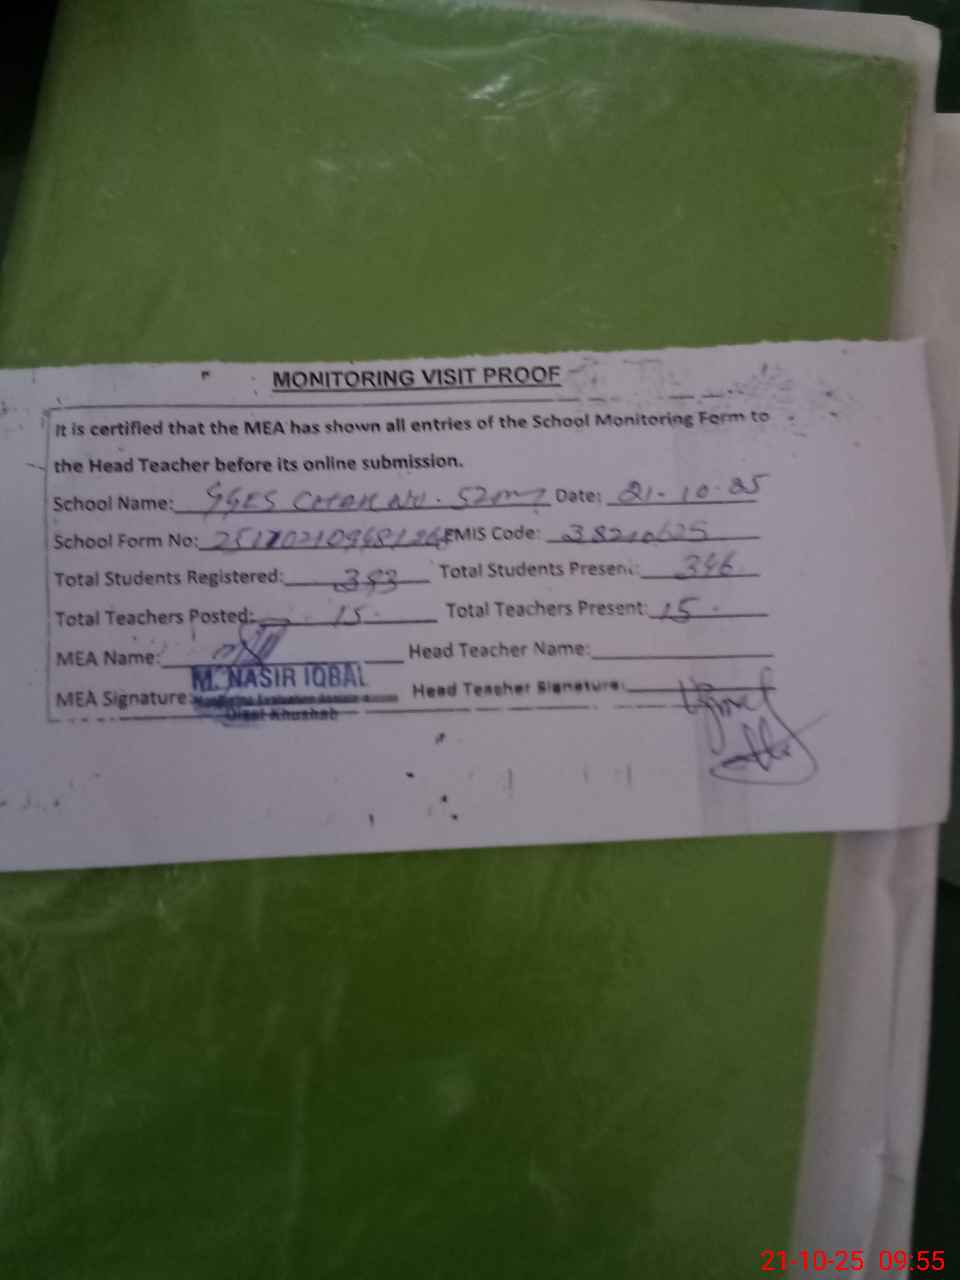 MONITORING VISIT PROOF
It is certified that the MEA has shown all entries of the School Monitoring Form to
the Head Teacher before its online submission.
School Name: GGES Date: 21-10-25
School Form No: EMIS Code: 38210625
Total Students Registered: 393 Total Students Present: 346
Total Teachers Posted: 15 Total Teachers Present: 15
MEA Name: Head Teacher Name:
M. NASIR IQBAL
MEA Signature: Head Teacher Signature:
Distt Khushab
21-10-25 09:55